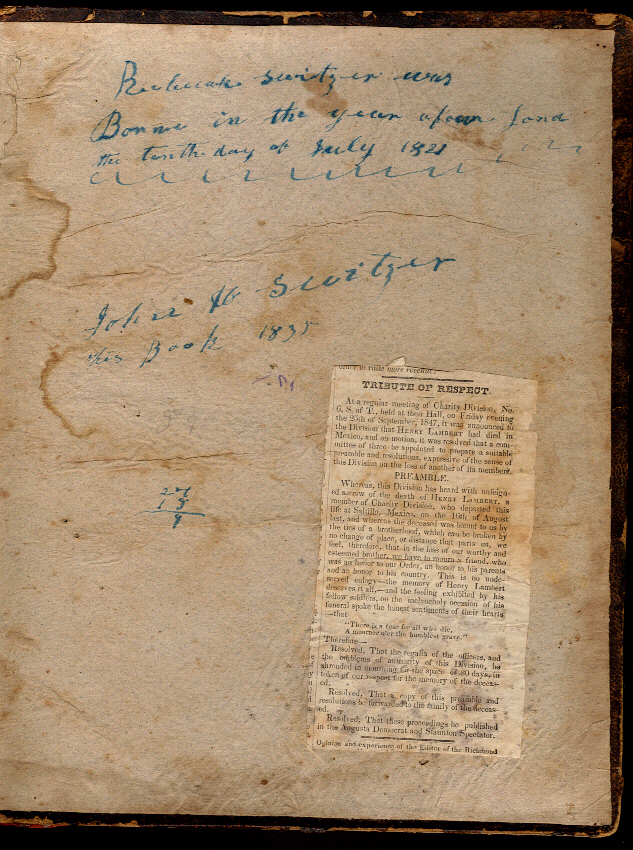 Rebecah Switzer was
Borne in the year of our Lord
the tenth day of July 1821
John H Switzer
his Book 1835
24
18
8
to raise more revenue.
TRIBUTE OF RESPECT.
At a regular meeting of Charity Division, No.
6, S. of T., held at their Hall, on Friday evening
the 25th of September, 1847, it was announced to
the Division that HENRY LAMBERT had died in
Mexico, and on motion, it was resolved that a com-
mittee of three be appointed to prepare a suitable
preamble and resolutions, expressive of the sense of
this Division on the loss of another of its members.
PREAMBLE.
Whereas, this Division has heard with unfeign-
ed sorrow of the death of HENRY LAMBERT, a
member of Charity Division, who departed this
life at Saltillo, Mexico, on the 16th of August
last, and whereas the deceased was bound to us by
the ties of a brotherhood, which can be broken by
no change of place, or distance that parts us, we
feel, therefore, that in the loss of our worthy and
esteemed brother, we have to mourn a friend, who
was an honor to our Order, an honor to his parents
and an honor to his country. This is no unde-
served eulogy—the memory of Henry Lambert
deserves it all,—and the feeling exhibited by his
fellow soldiers, on the melancholy occasion of his
funeral spoke the honest sentiments of their hearts
—that
"There is a tear for all who die,
A mourner o'er the humblest grave."
Therefore—
Resolved, That the regalia of the officers, and
the emblems of authority of this Division, be
shrouded in mourning for the space of 30 days, in
token of our respect for the memory of the deceas-
ed.
Resolved, That a copy of this preamble and
resolutions be forwarded to the family of the deceas-
ed.
Resolved, That these proceedings be published
in the Augusta Democrat and Staunton Spectator.
Opinion and experience of the Editor of the Richmond